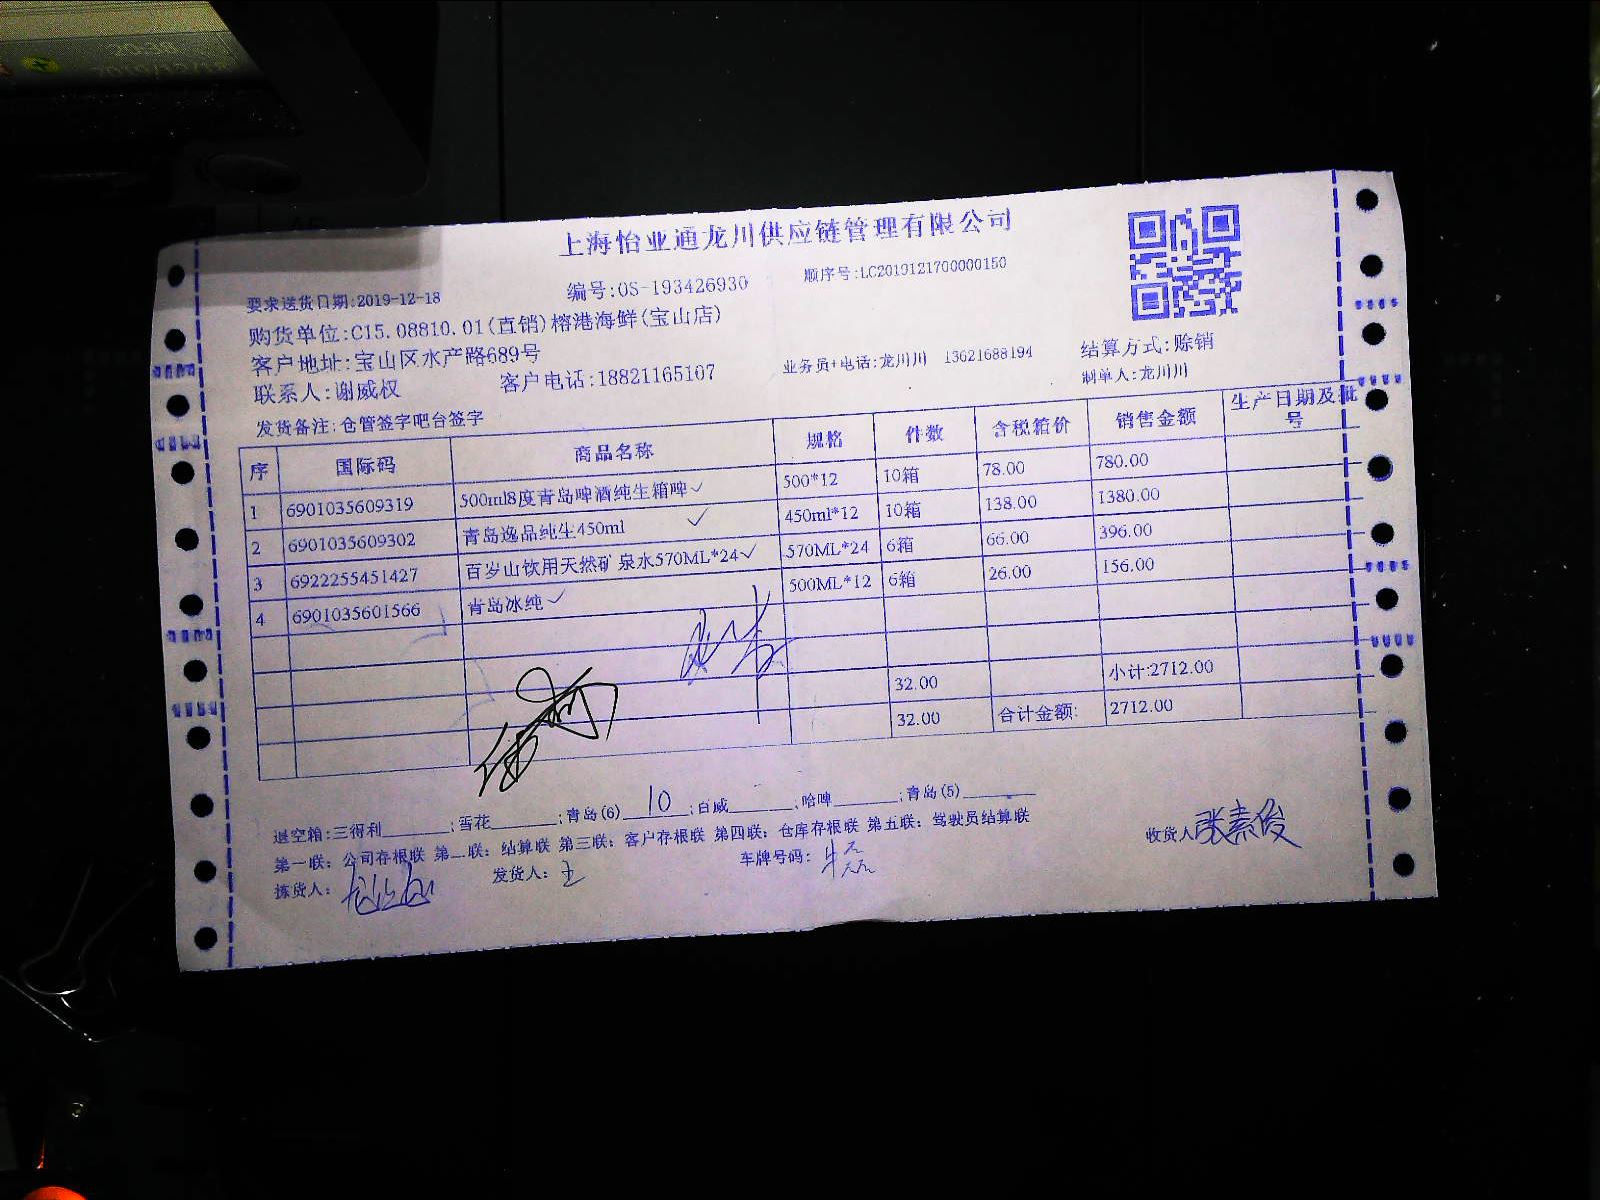 上海怡亚通龙川供应链管理有限公司
要求送货日期:2019-12-18 编号:OS-193426930 顺序号:LC2019121700000150
购货单位:C15.08810.01(直销)榕港海鲜(宝山店)
客户地址:宝山区水产路689号
联系人:谢威权 客户电话:18821165107 业务员+电话:龙川川 13621688194 结算方式:赊销
发货备注:仓管签字吧台签字 制单人:龙川川
序 国际码 商品名称 规格 件数 含税箱价 销售金额 生产日期及批号
1 6901035609319 500ml8度青岛啤酒纯生箱啤 500*12 10箱 78.00 780.00
2 6901035609302 青岛逸品纯生450ml 450ml*12 10箱 138.00 1380.00
3 6922255451427 百岁山饮用天然矿泉水570ML*24 570ML*24 6箱 66.00 396.00
4 6901035601566 青岛冰纯 500ML*12 6箱 26.00 156.00
32.00 小计:2712.00
32.00 合计金额: 2712.00
退空箱:三得利______;雪花______;青岛(6) 10 ;百威______;哈啤______;青岛(5)______
第一联: 公司存根联 第二联: 结算联 第三联: 客户存根联 第四联: 仓库存根联 第五联: 驾驶员结算联
收货人 张素俊
拣货人: 发货人: 王 车牌号码: